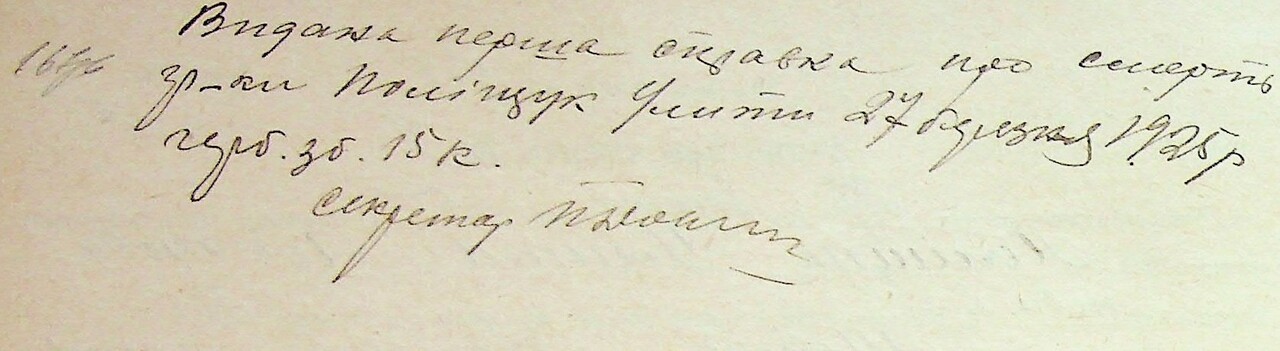 Видана перша справка про смерть
гр-ки Поліщук Улити 27 березня 1925 р
герб. зб. 15 к.
секретар